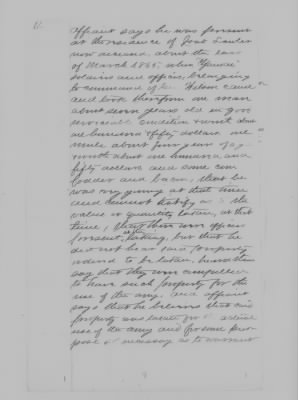 Affiant says he was present
at the residence of
now deceased about the last
of March 1865, when "Yankee"
soldiers and officers, belonging
to command of Wilson came
and took therefrom one mare
about seven years old in good
serviceable condition & worth about
one hundred & fifty dollars one
mule about four years of age
worth about one hundred and
fifty dollars and some corn
fodder and bacon, that he
was very young at that time
and cannot testify as to the
value or quantity taken, at that
time, that there were officers
present, taking, but that he
did not hear said property
ordered to be taken, heard them
say that they were compelled
to have such property for the
use of the army, and affiant
says that he believes that said
property was taken for actual
use of the army and for some pur-
pose so necessary as to warrant